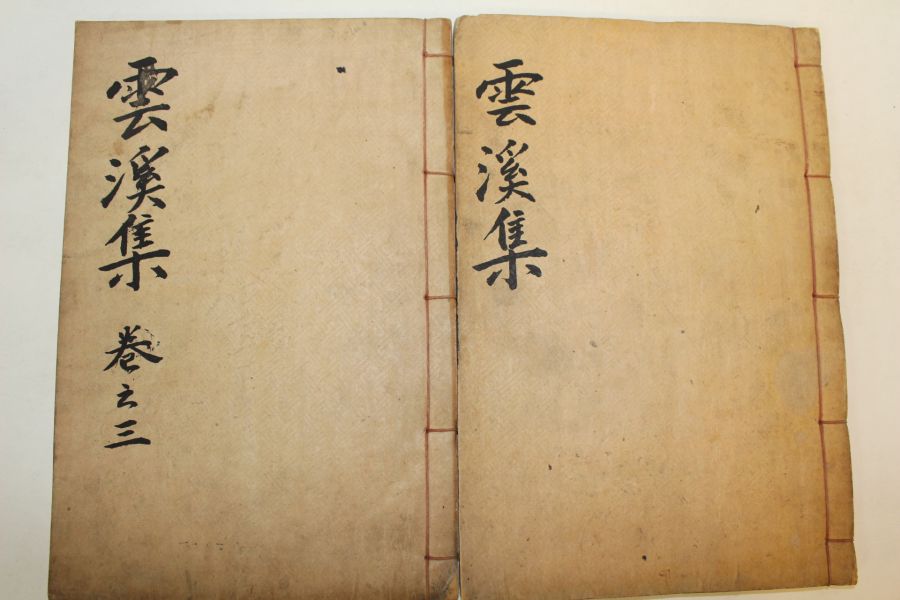 雲溪集
雲溪集
卷之三